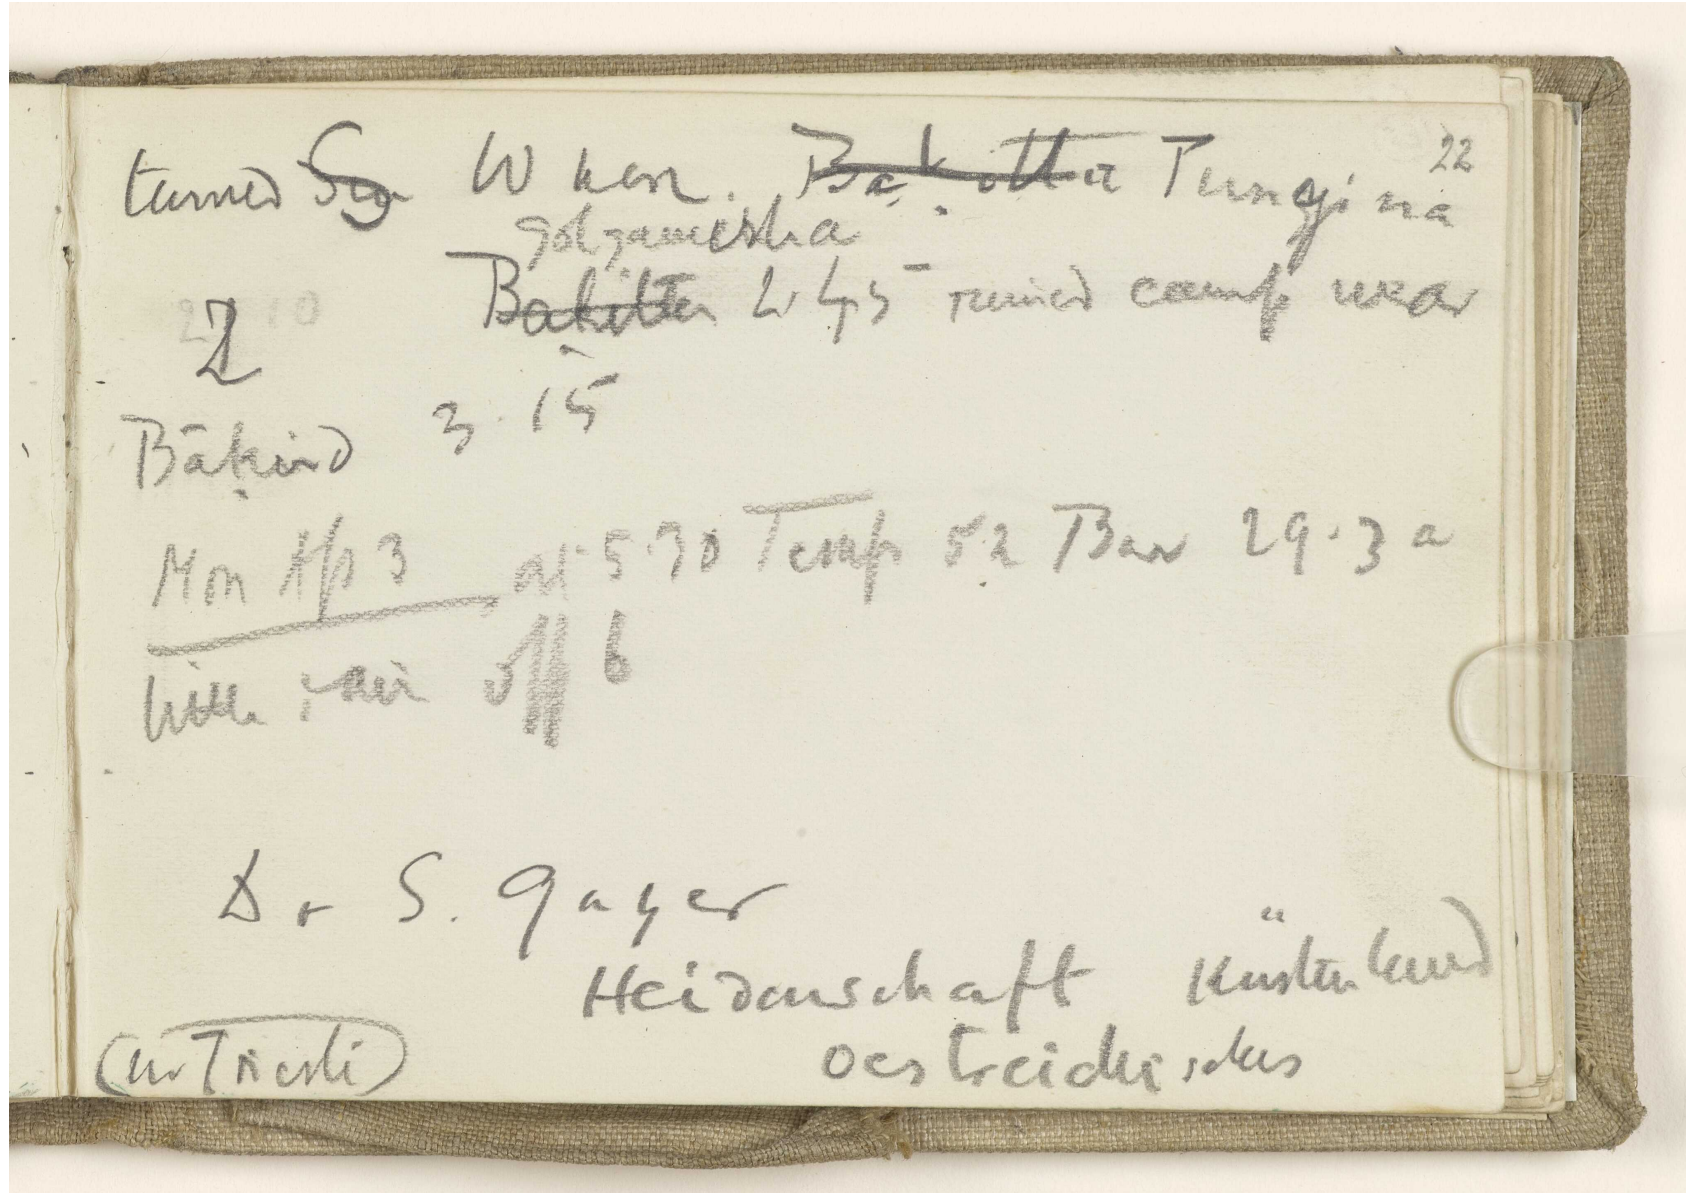 22
turned W here. Bakotta Tungina
golgamisha
Bakitta 2.45 ruined camp near
2
Bākird 3.15
Mon Ap 3 at 5.30 Temp 52 Bar 29.3 a
little rain off 6
Dr S. Gayer
Heidenschaft Küstenland
(nr Trieste) Oestreichisches